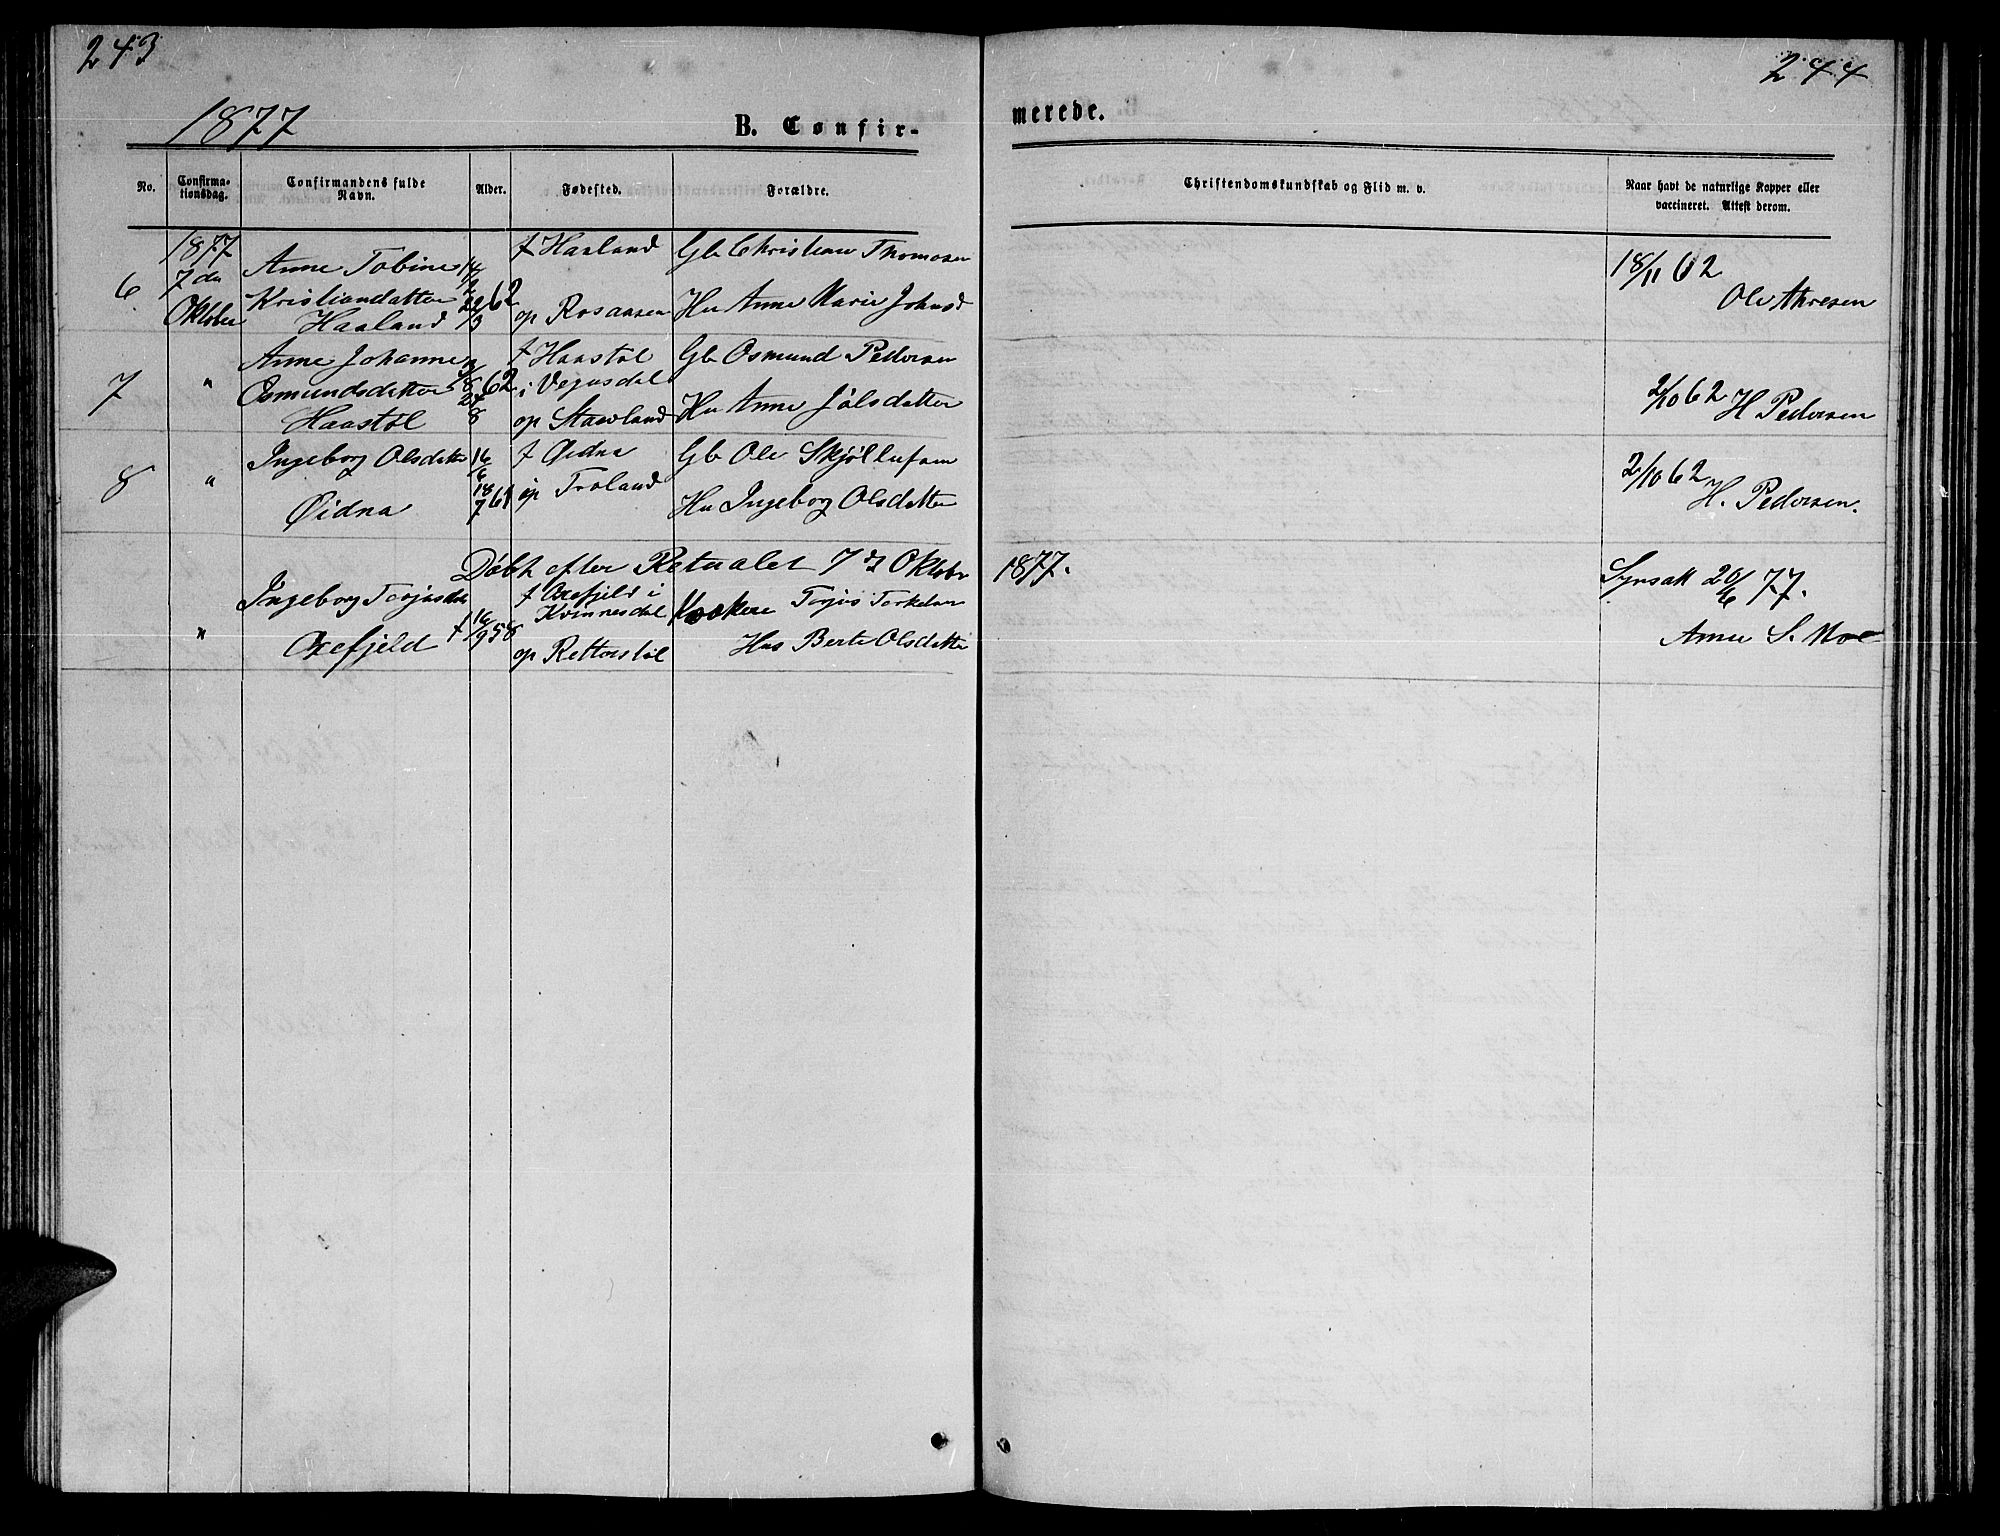 243
244
1877
B. Confir-
merede.
No.
Confirma-
tionsdag.
Confirmandens fulde
Navn.
Alder.
Fødested.
Forældre.
Christendomskundskab og Flid m. v.
Naar havt de naturlige Kopper eller
vaccineret. Attest derom.
6
1877
7de
Oktober
Anne Tobine
Kristiansdatter
Haaland
14/2
22/3 62
f Haaland
op Rosaasen
Gb Christian Thomasen
Hu Anne Marie Johnsd
18/11 62
Ole
7
"
Anne Johanne
Osmundsdatter
Haastøl
62
24/8
f Haastøl
i Vegusdal
op Stavland
Gb Osmund Pedersen
Hu Anne Jølsdatter
2/10 62
H Pedersen
8
"
Ingeborg Olsdatter
Øidna
16/6
18/7 61
f Øidna
op Troland
Gb Ole
Hu Ingeborg Olsdatter
2/10 62
H. Pedersen.
Døbt efter Retualet 7de Oktober 1877.
"
Ingeborg Terjesdt
Oxefjeld
f 16/9 58
f Oxefjeld i
Kvinnesdal
op
Terjus Terkelsen
Hus Berte Olsdatter
20/6 77.
Anne S. Moe